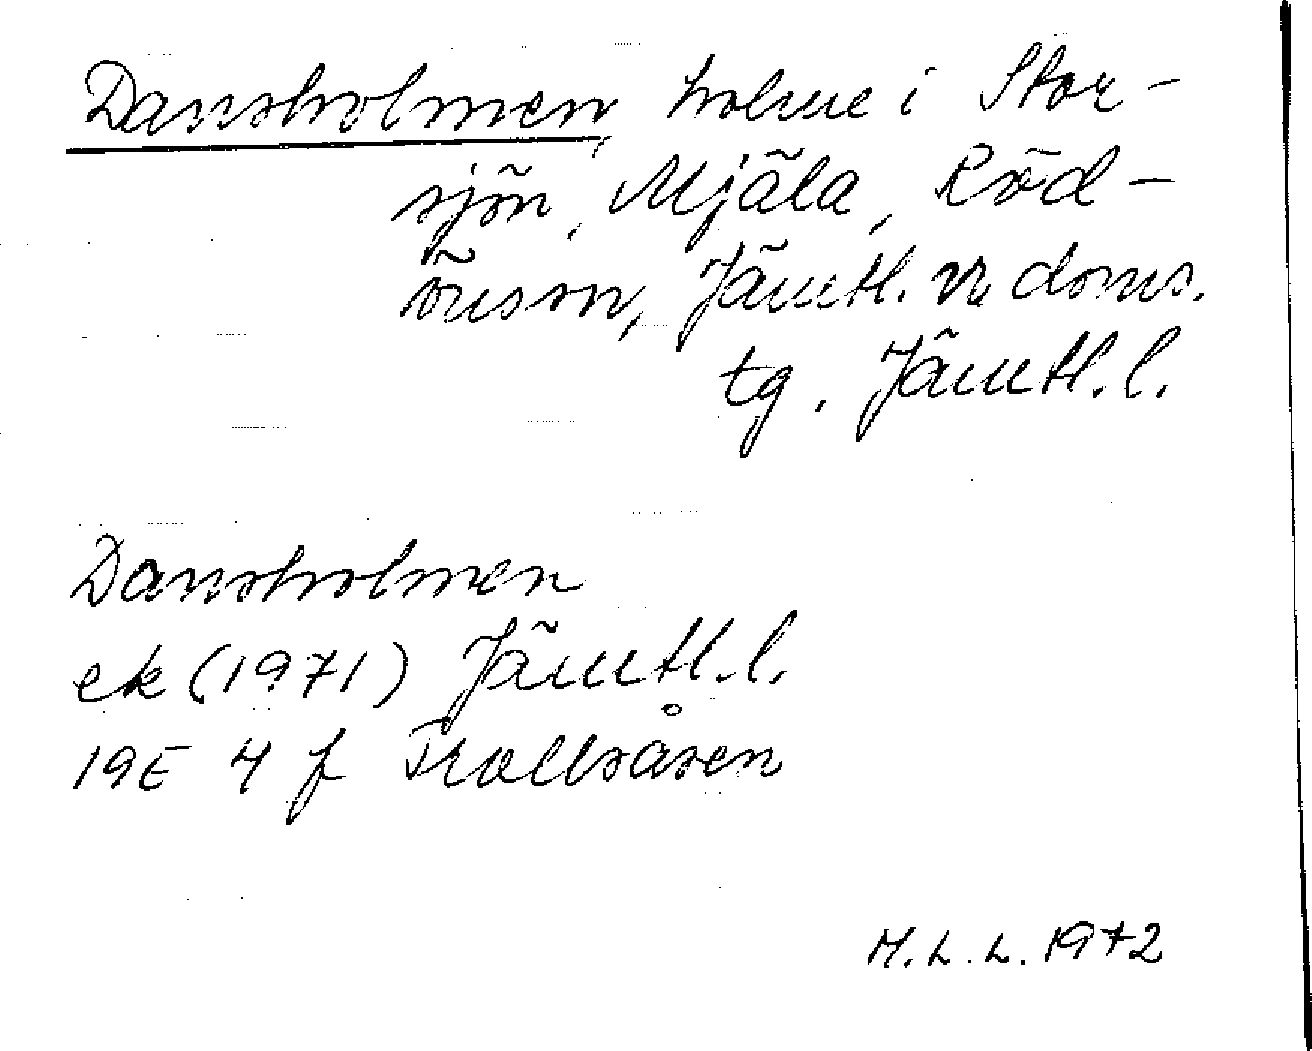 Dansholmen, holme i Stor-
sjön, Mjäla, Röd-
önson, Jämtl. v. doms.
tg. Jämtl. l.
Dansholmen
ek (1971) Jämtl. l.
19E 4 f Trollsåsen
M. L. L. 1972